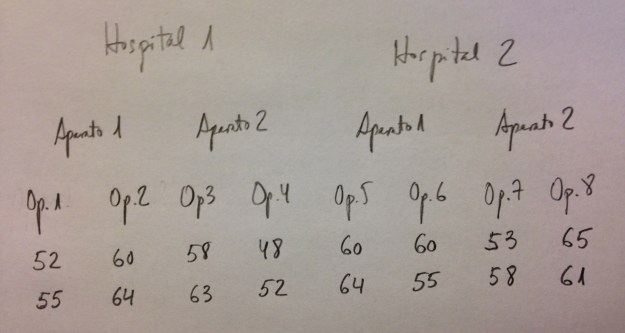 Hospital 1 Hospital 2
Aparato 1 Aparato 2 Aparato 1 Aparato 2
Op.1. Op.2 Op3 Op.4 Op.5 Op.6 Op.7 Op.8
52 60 58 48 60 60 53 65
55 64 63 52 64 55 58 61